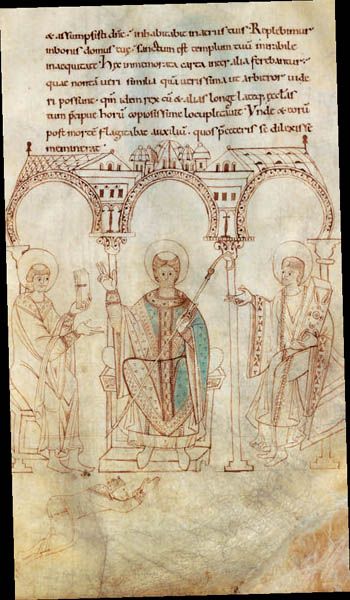 & assumpsisti dñe . inhabitabit in atriis tuis Replebimur
in bonis domus tuę . sanctum est templum tuū mirabile
in aequitate hęc in memorata carta inter alia ferebantur .
quae non tā veri similia quā verissima ut arbitror
ri possint . quia idem rex cū & alias longe lateq;
horū copiosissime locupletavit . Unde & eorū
post mortē flagitabat auxiliū . quos se dilexisse
meminerat